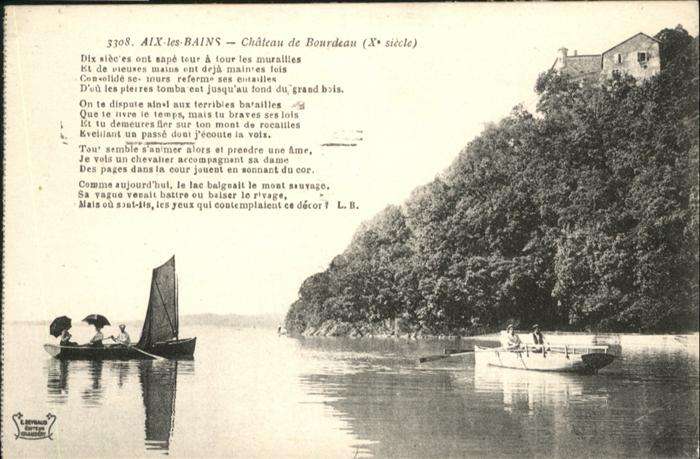 3308. AIX-les-BAINS — Château de Bourdeau (Xe siècle)
Dix siècles ont sapé tour à tour les murailles
Et de pieuses mains ont déjà maintes fois
Consolidé ses murs refermé ses entailles
D'où les pierres tombaient jusqu'au fond du grand bois.
On te dispute ainsi aux terribles batailles
Que te livre le temps, mais tu braves ses lois
Et tu demeures fier sur ton mont de rocailles
Eveillant un passé dont j'écoute la voix.
Tout semble s'animer alors et prendre une âme,
Je vois un chevalier accompagnant sa dame
Des pages dans la cour jouent en sonnant du cor.
Comme aujourd'hui, le lac baignait le mont sauvage,
Sa vague venait battre ou baiser le rivage,
Mais où sont-ils, les yeux qui contemplaient ce décor ? L. B.
E. REYNAUD
EDITEUR
CHAMBÉRY